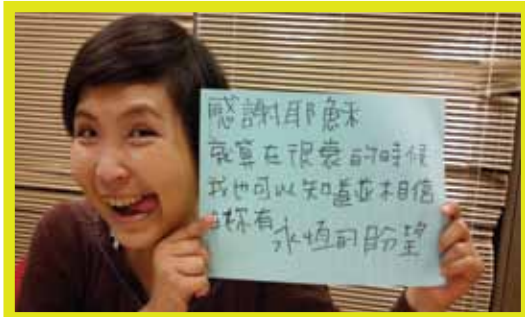 感謝耶穌
就算在很衰的時候
我也可以知道並相信
在祢有永恆的盼望